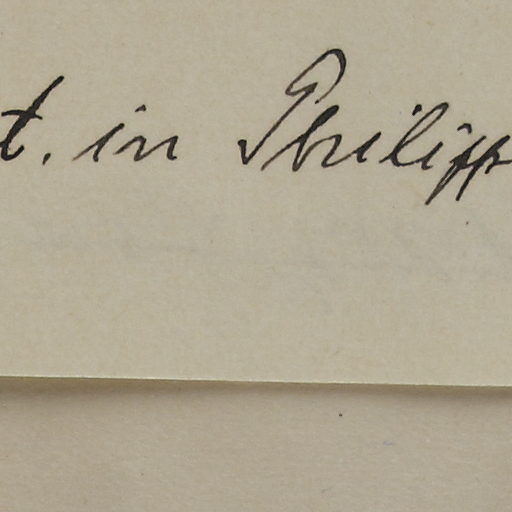 t. in Philipp